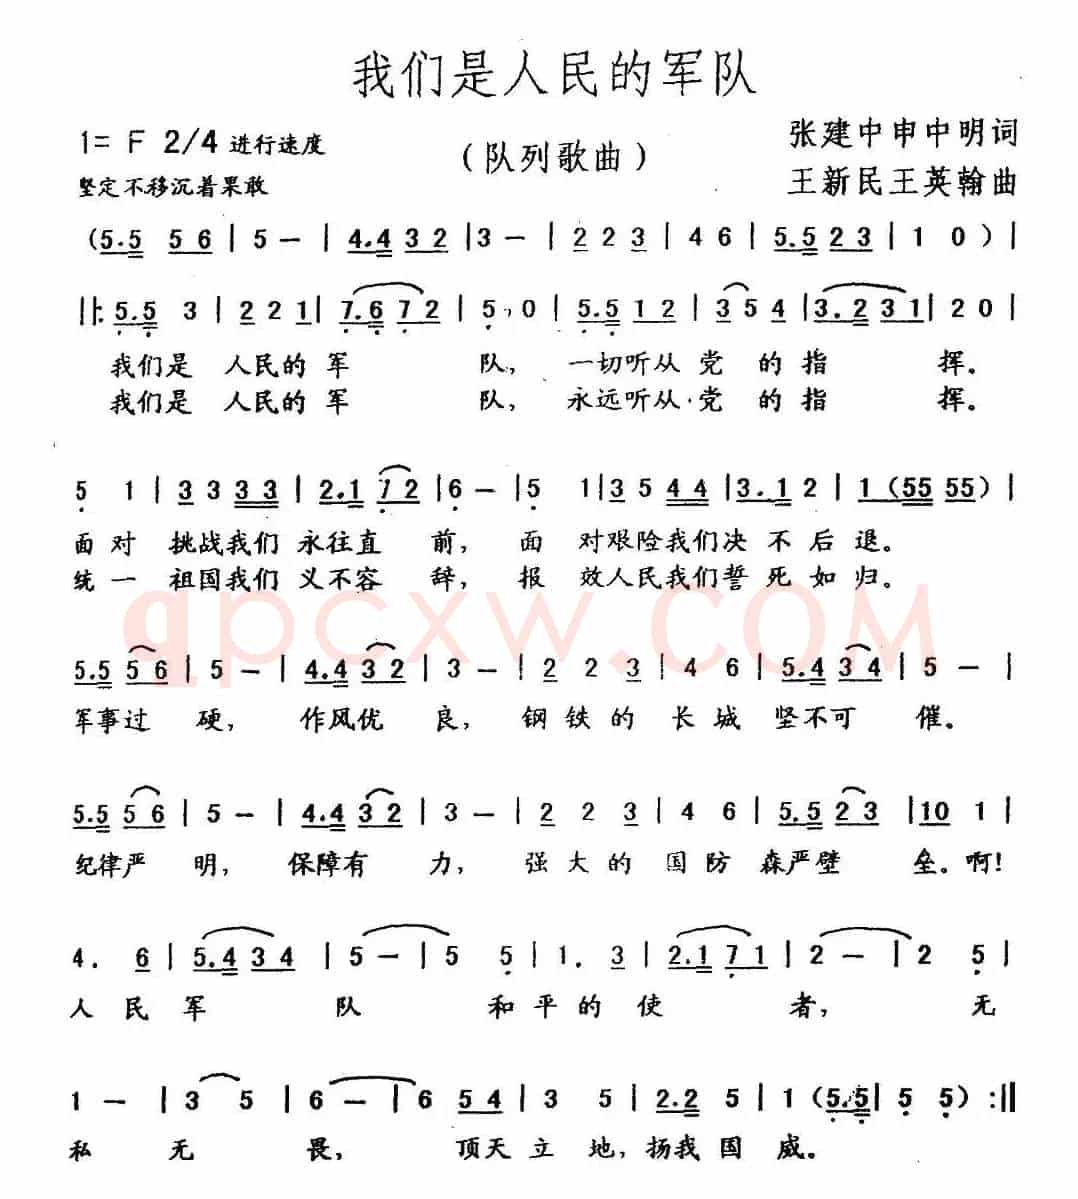 我们是人民的军队
1= F 2/4 进行速度
（队列歌曲）
张建中申中明词
坚定不移沉着果敢
王新民王英翰曲
(5.5 5 6 | 5 — | 4.4 3 2 | 3 — | 2 2 3 | 4 6 | 5.5 2 3 | 1 0 ) |
‖: 5.5 3 | 2 2 1 | 7.6 7 2 | 5 , 0 | 5.5 1 2 | 3 5 4 | 3.2 3 1 | 2 0 |
我们是 人民的 军 队， 一切听从 党 的 指 挥。
我们是 人民的 军 队， 永远听从·党 的 指 挥。
5 1 | 3 3 3 3 | 2.1 7 2 | 6 — | 5 1 | 3 5 4 4 | 3.1 2 | 1 (55 55) |
面 对 挑战我们 永往直 前， 面 对艰险我们决 不 后 退。
统 一 祖国我们 义不容 辞， 报 效人民我们誓 死 如 归。
qpcxw.COM
5.5 5 6 | 5 — | 4.4 3 2 | 3 — | 2 2 3 | 4 6 | 5.4 3 4 | 5 — |
军事过 硬， 作风优 良， 钢 铁 的 长 城 坚不可 催。
5.5 5 6 | 5 — | 4.4 3 2 | 3 — | 2 2 3 | 4 6 | 5.5 2 3 | 10 1 |
纪律严 明， 保障有 力， 强 大 的 国 防 森严壁 垒。啊！
4. 6 | 5.4 3 4 | 5 — | 5 5 | 1. 3 | 2.1 7 1 | 2 — | 2 5 |
人 民 军 队 和 平 的 使 者， 无
1 — | 3 5 | 6 — | 6 5 4 | 3 5 | 2.2 5 | 1 (5.5 | 5 5) :‖
私 无 畏， 顶天 立 地，扬我 国 威。